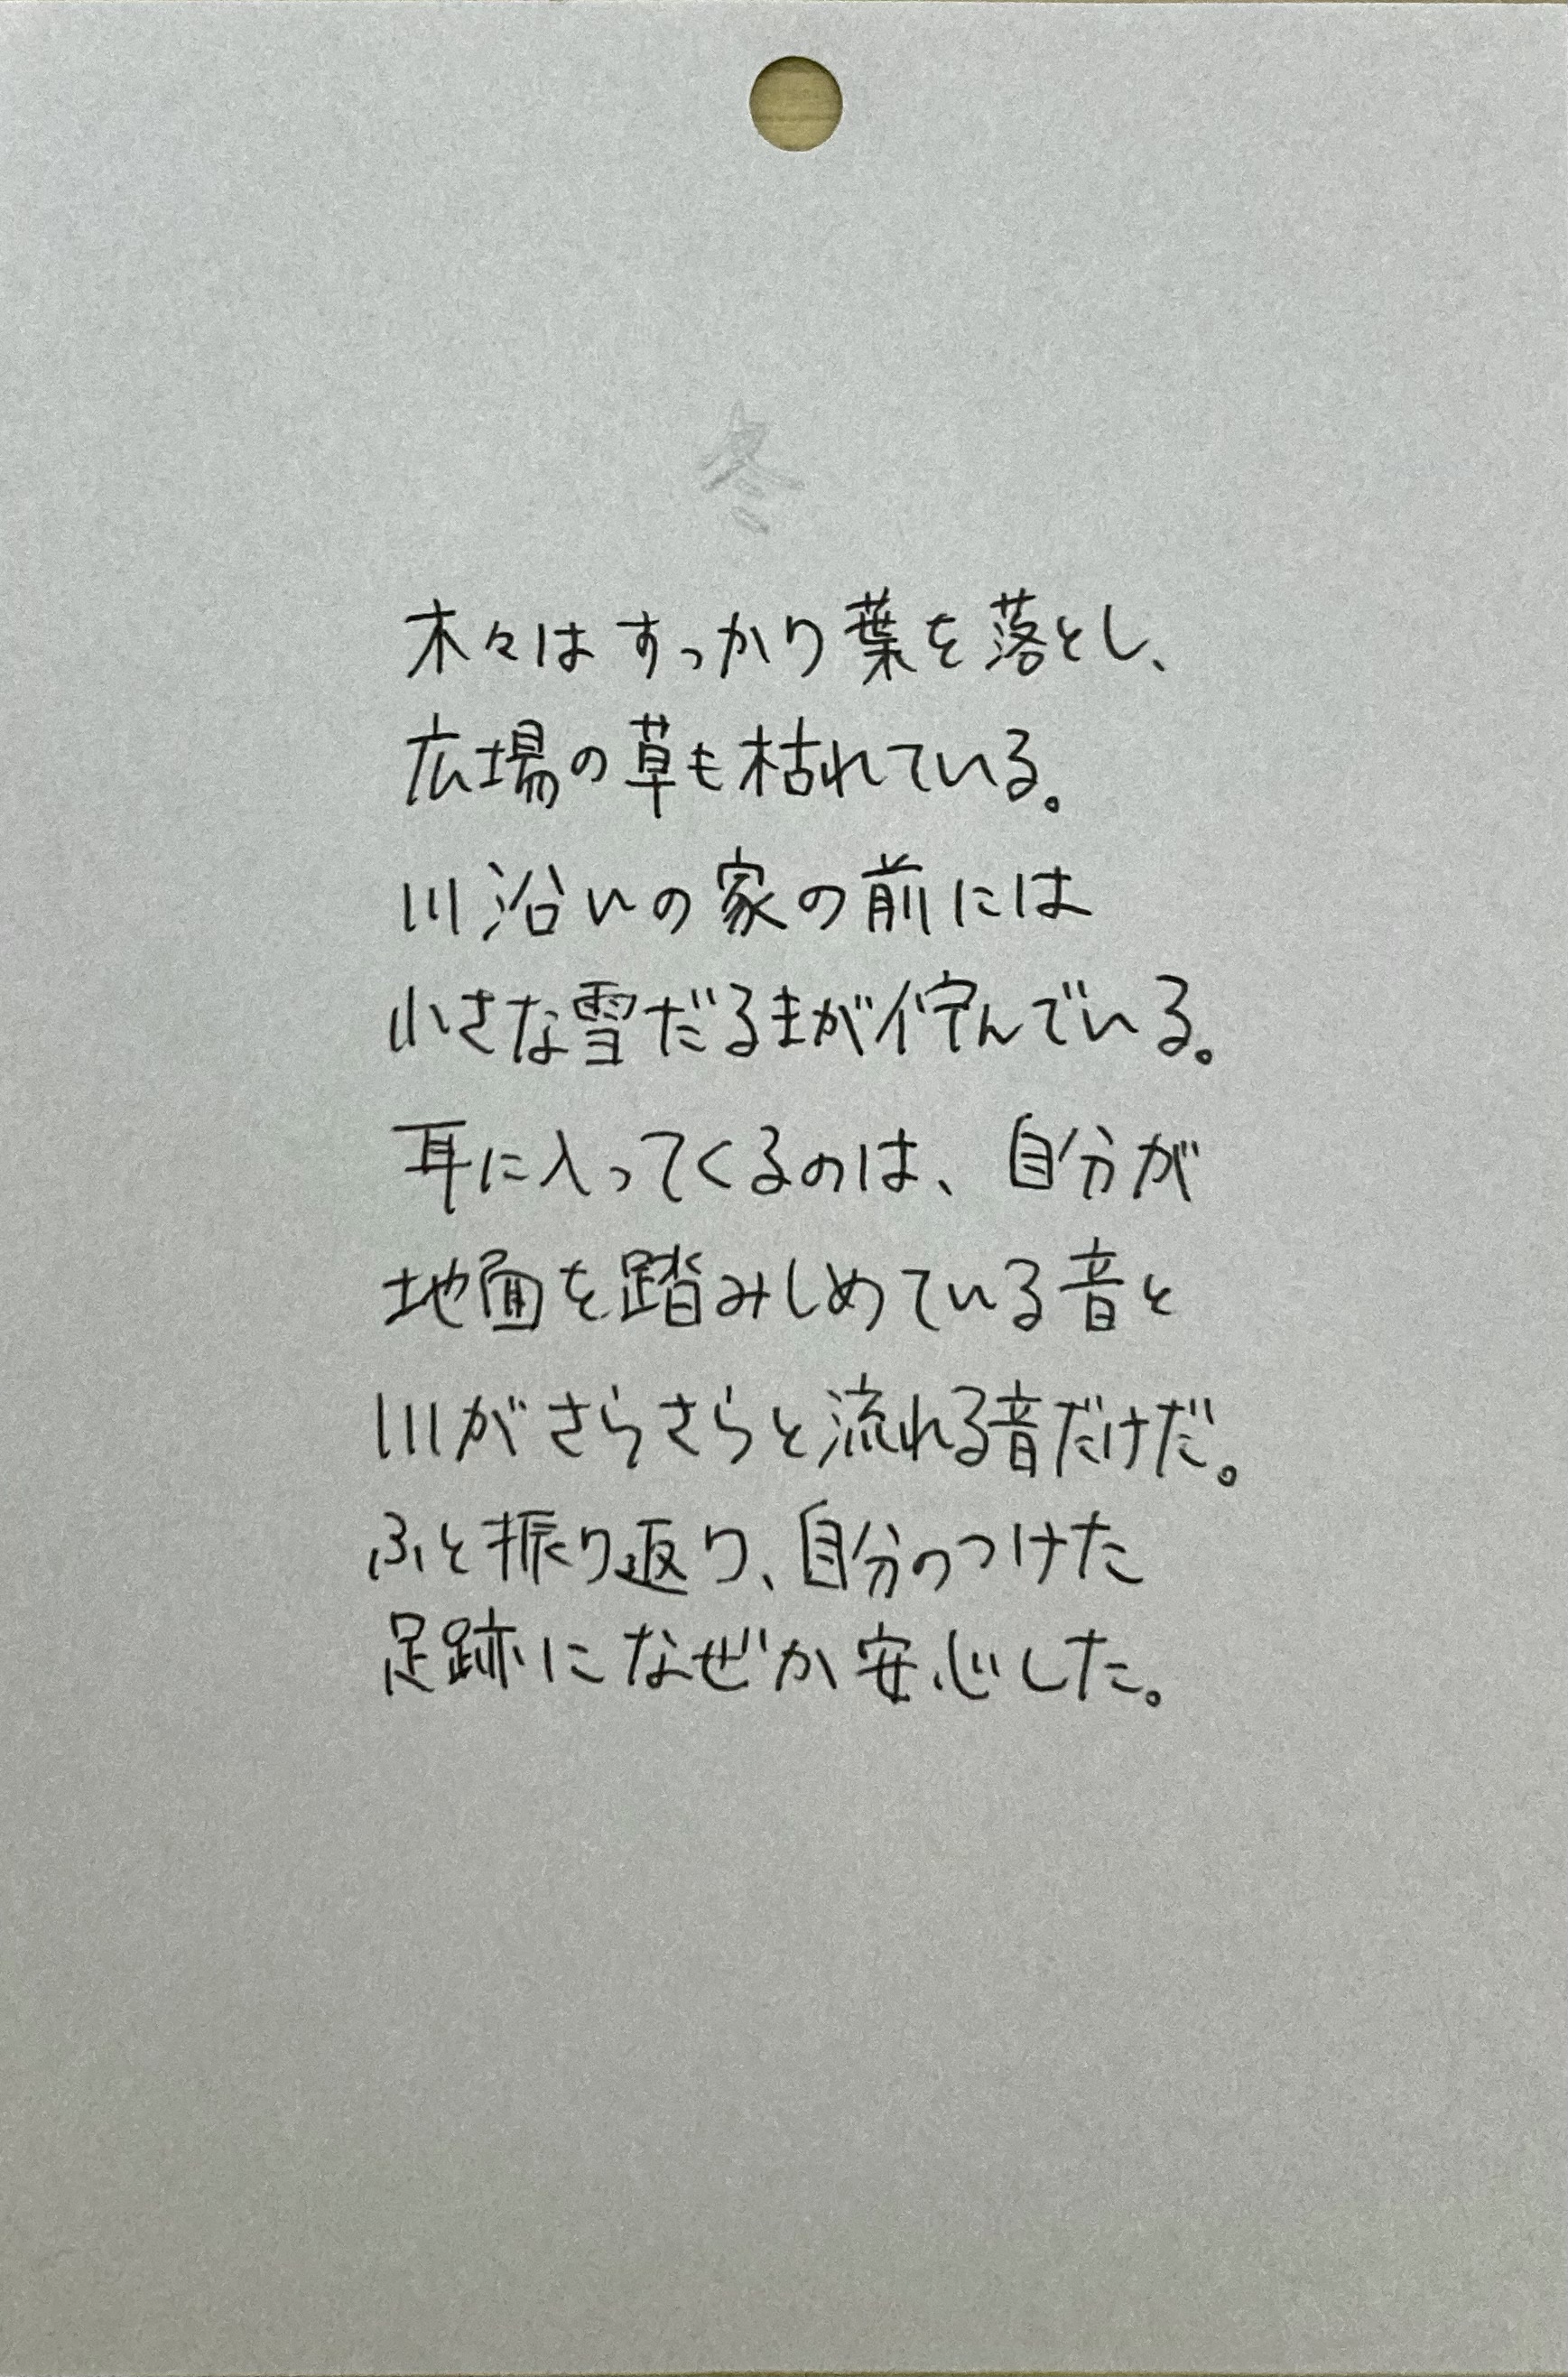 冬
木々はすっかり葉を落とし、
広場の草も枯れている。
川沿いの家の前には
小さな雪だるまが佇んでいる。
耳に入ってくるのは、自分が
地面を踏みしめている音と
川がさらさらと流れる音だけだ。
ふと振り返り、自分のつけた
足跡になぜか安心した。